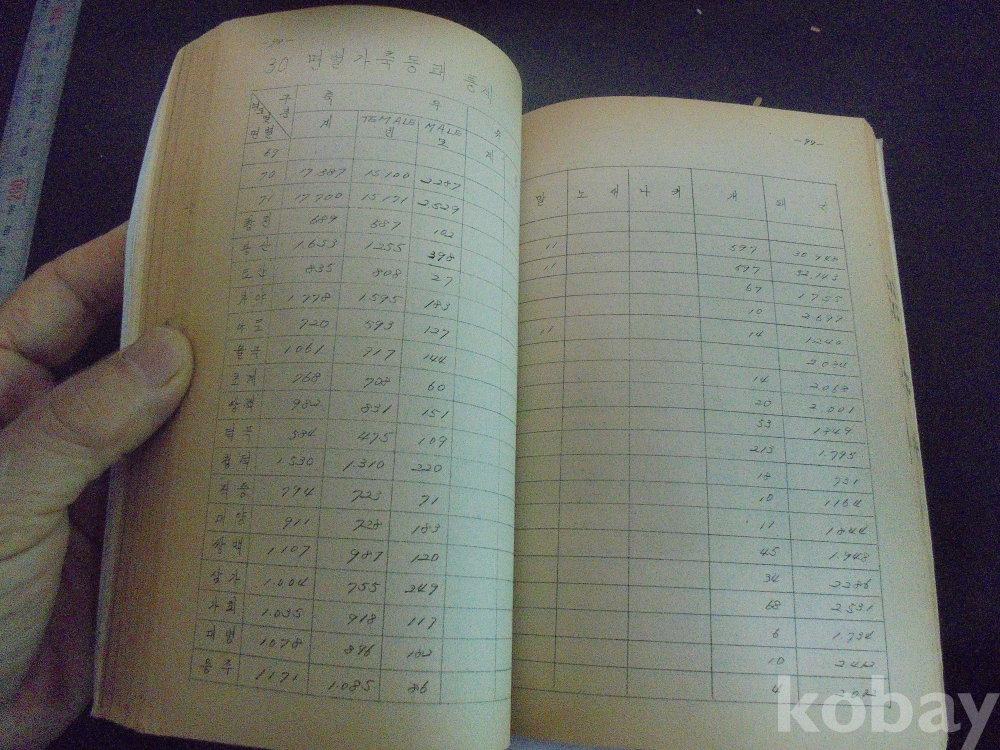 30 면별가축동태 통계
구분 축 우
면별
계 FEMALE MALE 계
69
70 17387 15100 2287
71 17.700 15.171 2.529
689 587 102
1.653 1.255 398
835 808 27
가야 1.778 1.595 183
야로 720 593 127
율곡 1.061 717 144
초계 768 708 60
쌍책 982 831 151
덕곡 584 475 109
청덕 1.530 1.310 220
적중 794 723 71
대양 911 728 183
쌍백 1.107 987 120
삼가 1.004 755 249
가회 1.035 918 117
대병 1.078 896 182
용주 1171 1.085 86
-99-
말 노새 나귀
11 597
11 597
67 1.755
10 2.697
11 14 1240
14 2.068
20 2.001
53 1849
213 1.795
731
10 1164
11 1844
45 1.948
34 2286
68 2531
6 1.734
10
4
kobay